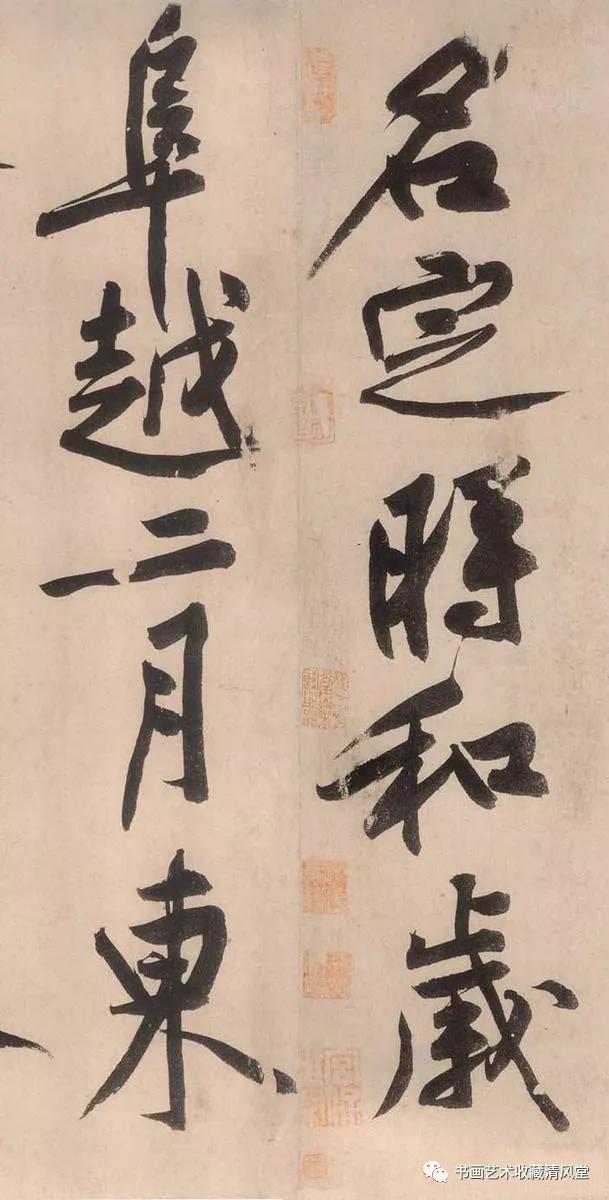 名定時和歲
阜越二月東
书画艺术收藏清风堂